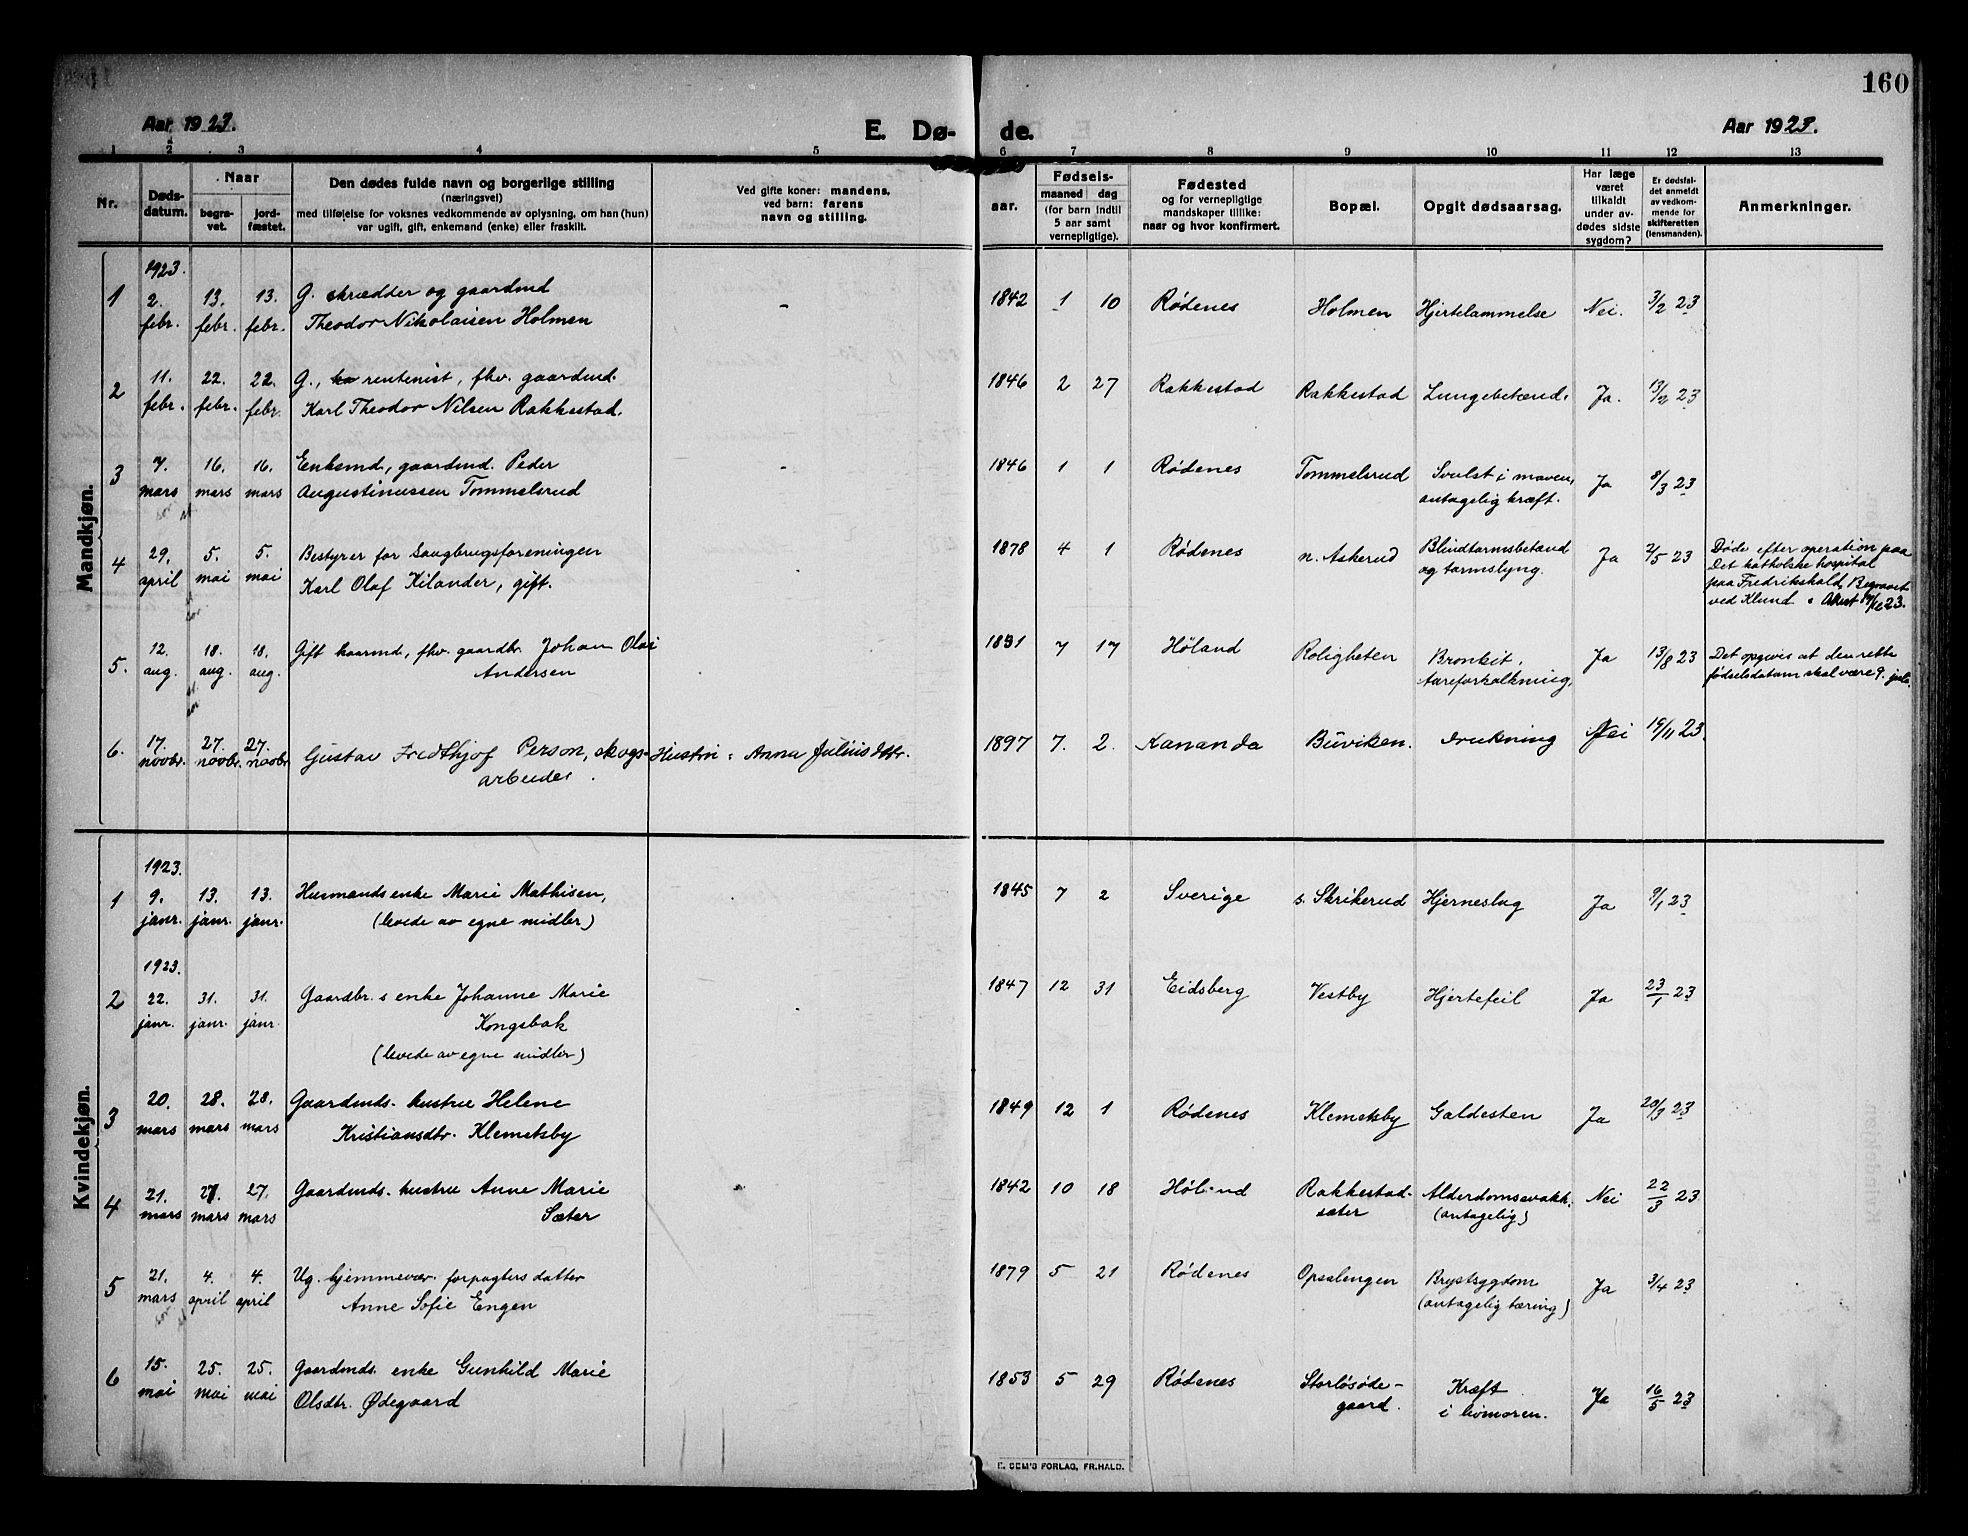 160
Aar 1923.
E. Dø-
de.
Aar 1923.
1 2 3 4 5 6 7 8 9 10 11 12 13
Nr.
Døds-
datum.
Naar
begra-
vet.
jord-
fæstet.
Den dødes fulde navn og borgerlige stilling
(næringsvei)
med tilføielse for voksnes vedkommende av oplysning, om han (hun)
var ugift, gift, enkemand (enke) eller fraskilt.
Ved gifte koner: mandens.
ved barn: farens
navn og stilling.
aar.
Fødsels-
maaned dag
(for barn indtil
5 aar samt
vernepligtige).
Fødested
og for vernepligtige
mandskaper tillike:
naar og hvor konfirmert.
Bopæl.
Opgit dødsaarsag.
Har læge
været
tilkaldt
under av-
dødes sidste
sygdom?
Er dødsfal-
det anmeldt
av vedkom-
mende for
skifteretten
(lensmanden).
Anmerkninger.
Mandkjøn.
1923.
1 2. febr. 13. febr. 13. febr. G. skrædder og gaardmd
Theodor Nikolaisen Holmen - 1842 1 10 Rødenes Holmen Hjertelammelse Nei. 3/2 23
2 11. febr. 22. febr. 22. febr. G., rentenist, fhv. gaardmd.
Karl Theodor Nilsen Rakkestad. 1846 2 27 Rakkestad Rakkestad Lungebetænd. Ja. 13/2 23
3 7. mars 16. mars 16. mars Enkemd, gaardmd. Peder
Augustinussen Tommelsrud - 1846 1 1 Rødenes Tommelsrud Svulst i maven,
antagelig kræft. Ja 8/3 23
4 29. april 5. mai 5. mai Bestyrer for Saugbrugsforeningen
Karl Olaf Kilander, gift. 1878 4 1 Rødenes n. Askerud Blindtarmsbetænd
og tarmslyng. Ja 2/5 23 Døde efter operation paa
Det katholske hospital
paa Fredrikshald. Begravet
ved Klund
5. 12. aug. 18. aug. 18. aug. Gift kaarmd, fhv. gaardbr. Johan Olai
Andersen 1831 7 17 Høland Roligheten Bronkit,
Aareforkalkning, Ja 13/8 23 Det opgives at den rette
fødselsdatum skal være 9. juli.
6. 17. novbr. 27. novbr. 27. novbr. Gustav Fredthjof Person, skogs-
arbeider. Hustru: Anna Juliusdttr. 1897 7. 2. Kananda Buviken. drukning Nei 19/11 23.
Kvindekjøn.
1923.
1 9. janr. 13. janr. 13. janr. Husmandsenke Marie Mathisen,
(levede av egne midler) 1845 7 2 Sverige s. Skrikerud Hjerneslag Ja 9/1 23
1923.
2 22. janr. 31. janr. 31. janr. Gaardbr.s enke Johanne Marie
Kongsbak
(levede av egne midler) 1847 12 31 Eidsberg Vestby Hjertefeil Ja 23/1 23
3 20. mars 28. mars 28. mars Gaardmds. hustru Helene
Kristiansdtr. Klemetsby 1849 12 1 Rødenes Klemetsby Galdesten Ja 20/3 23
4 21. mars 27. mars 27. mars Gaardmds. hustru Anne Marie
Sæter 1842 10 18 Høland Rakkestad-
sæter Alderdomssvakh.
(antagelig) Nei 22/3 23
5 21. mars 4. april 4. april Ug. hjemmevær. forpagters datter
Anne Sofie Engen 1879 5 21 Rødenes Opsalengen Brystsygdom
(antagelig tæring) Ja 3/4 23
6 15. mai 25. mai 25. mai Gaardmds. enke Gunhild Marie
Olsdtr. Ødegaard 1853 5 29 Rødenes Storløsøde-
gaard. Kræft
i livmoren. Ja 16/5 23
E. SEM'S FORLAG, FR.HALD.